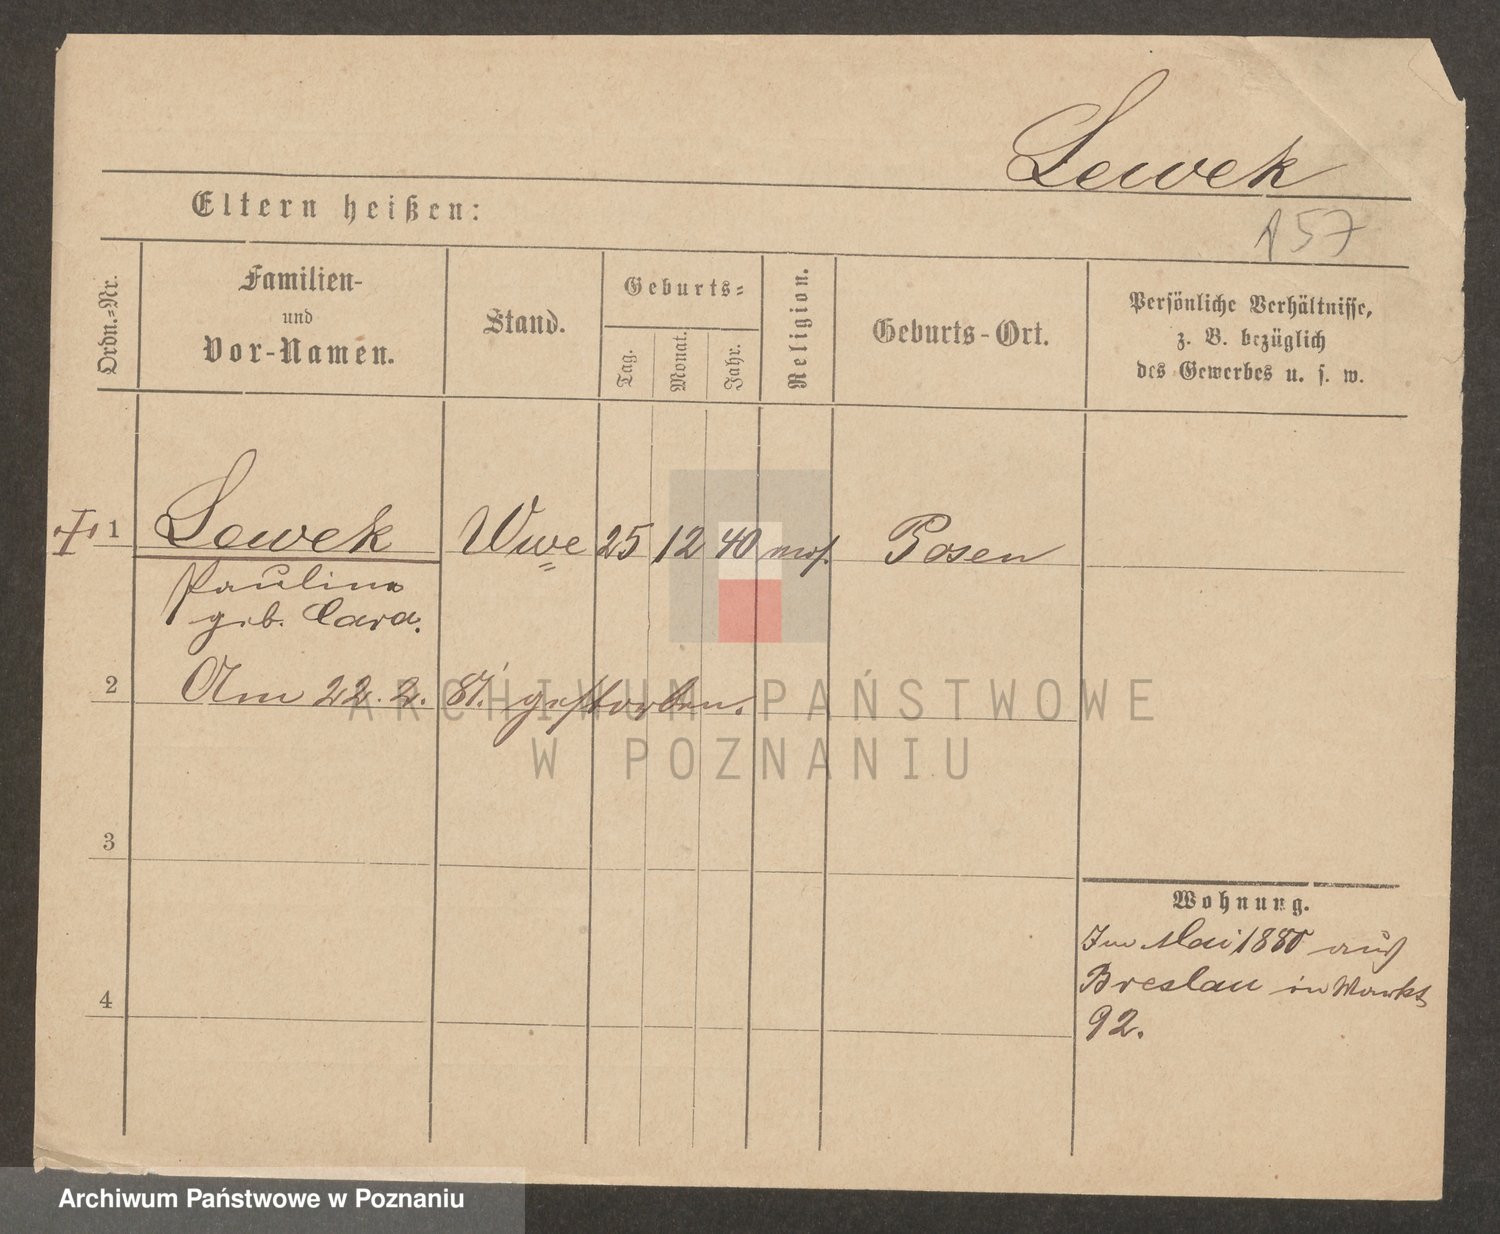 Lewek
Eltern heißen:
157
Ordn.-Nr.
Familien-
und
Vor-Namen.
Stand.
Geburts-
Tag.
Monat.
Jahr.
Religion.
Geburts-Ort.
Persönliche Verhältnisse,
z. B. bezüglich
des Gewerbes u. s. w.
1 Lewek Wwe 25 12 40 mos. Posen
Pauline
geb. Caro.
2 Am 22. 2. 81. gestorben.
ARCHIWUM PAŃSTWOWE
W POZNANIU
3
Wohnung.
Im Mai 1880 aus
Breslau in Markt
92.
4
Archiwum Państwowe w Poznaniu